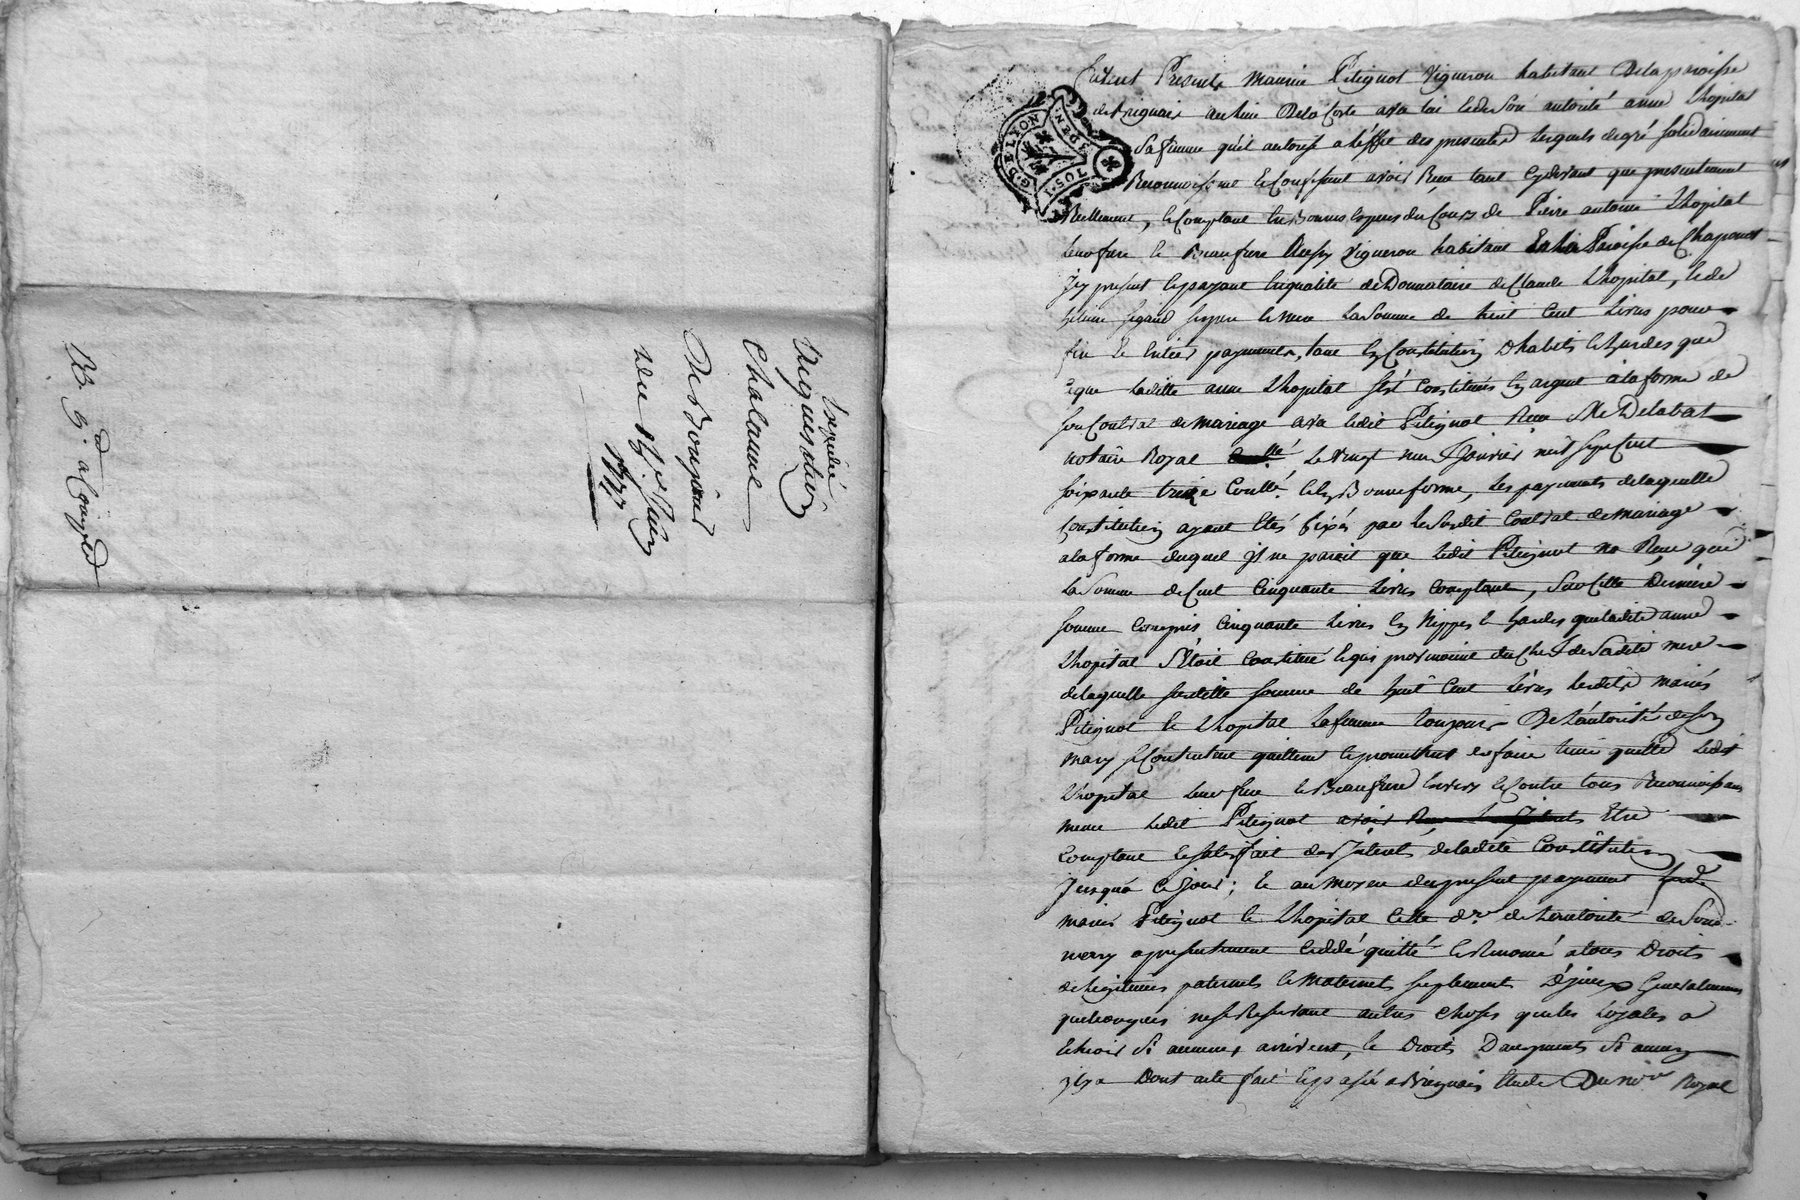 Expedié
Requisition
Chalanne
De Bonnard
du 18e Juin
1777
Rd a Coigned
G. DE LYON
DEN
1. SOL
Furent Presents Maurice Pitiguot Vigneron habitant Dela paroisse
de Brignais au lieu Dela Coste avec lui et de Son autorité anne Lhopital
Sa femme qu'il autorise a l'effet des presentes lesquels de gré solidairement
Reconnoissent et Confessent avoir Reçu tant cydevant que presentement
Reellement, et Comptant en Bonnes Especes du Cours de Pierre antoine Lhopital
leur frere et Beaufrere Vigneron habitant En la Paroisse de Chaponost
Icy present et payant en qualité de Donnataire de Claude Lhopital, et de
ses pere et mere La Somme de huit Cent livres pour
fin et Entier payement, tant en Constitution D'habits et hardes que
que laditte anne Lhopital s'est Constituée en argent a la forme de
son Contrat de Mariage avec ledit Pitiguot Reçu Me Delabat
notaire Royal Le Vingt neuf Janvier mil sept Cent
soixante treize Conllé et En Bonne forme, les payements de laquelle
Constitution ayant Etés fixés par le Susdit Contrat de Mariage
a la forme duquel il ne paroit que ledit Pitiguot na Reçu que
La Somme de Cent Cinquante livres Comptant, Sur Cette Derniere
Somme Compris Cinquante livres En Nippes et hardes que ladite anne
Lhopital S'étoit Constitué et qui provenoient du Chef de Sa dite mere
de laquelle susditte Somme de huit Cent livres lesdits mariés
Pitiguot et Lhopital La femme toujours De L'autorité de son
mary se Contentent quittent et promettent en faire tenir quitte ledit
Lhopital leur frere et Beaufrere Envers et Contre tous Reconnoissant
meme ledit Pitiguot avoir Reçu les Interets Etre
Comptant et Satisfait des Interets de ladite Constitution
Jusqu'a Ce Jour; et au moyen du present payement lesd.
mariés Pitiguot et Lhopital Cette dre de L'autorité de Son d.
mary a presentement Cedé quitté et Renoncé a tous Droits
de legitimes paternels et Maternels Supplement Généralement
quelconques ne se Reservant autres Choses que les Loyales a
Echeoir Si aucunes arrivent, et Droits D'augments Si aucun
il y a Dont acte fait et passé a Brignais Etude Du nore Royal